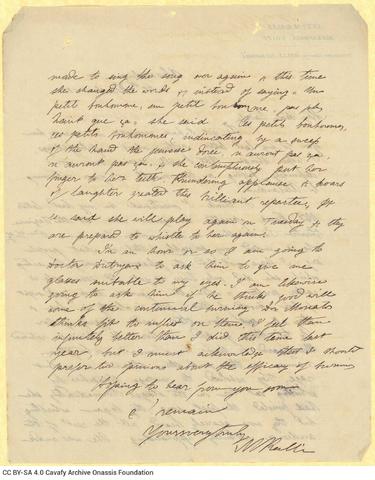 made to sing the song over again & this time
she changed the words & instead of saying "Un
petit bonhomme, un petit bonhomme, pas plus
haut que ça" she said "Ces petits bonhommes,
ces petits bonhommes, indicating by a sweep
of the hand the jeunesse dorée, n'auront pas ça,
n'auront pas ça, & she contemptuously put her
finger to her teeth. Thundering applause & roars
of laughter greeted this brilliant repartee. It
is said she will play again on Tuesday & they
are prepared to whistle to her again.
I'm in hour or so I am going to
Doctor to ask him to give me
glasses suitable to my eyes. I am likewise
going to ask him if he thinks good will
come of the continual burning. Dr
thinks fit to inflict on them. I feel them
infinitely better than I did this time last
year, but I must acknowledge that I should
prefer two opinions about the efficacy of burning
Hoping to hear from you soon
I remain
Yours very truly
M Ralli
CC BY-SA 4.0 Cavafy Archive Onassis Foundation